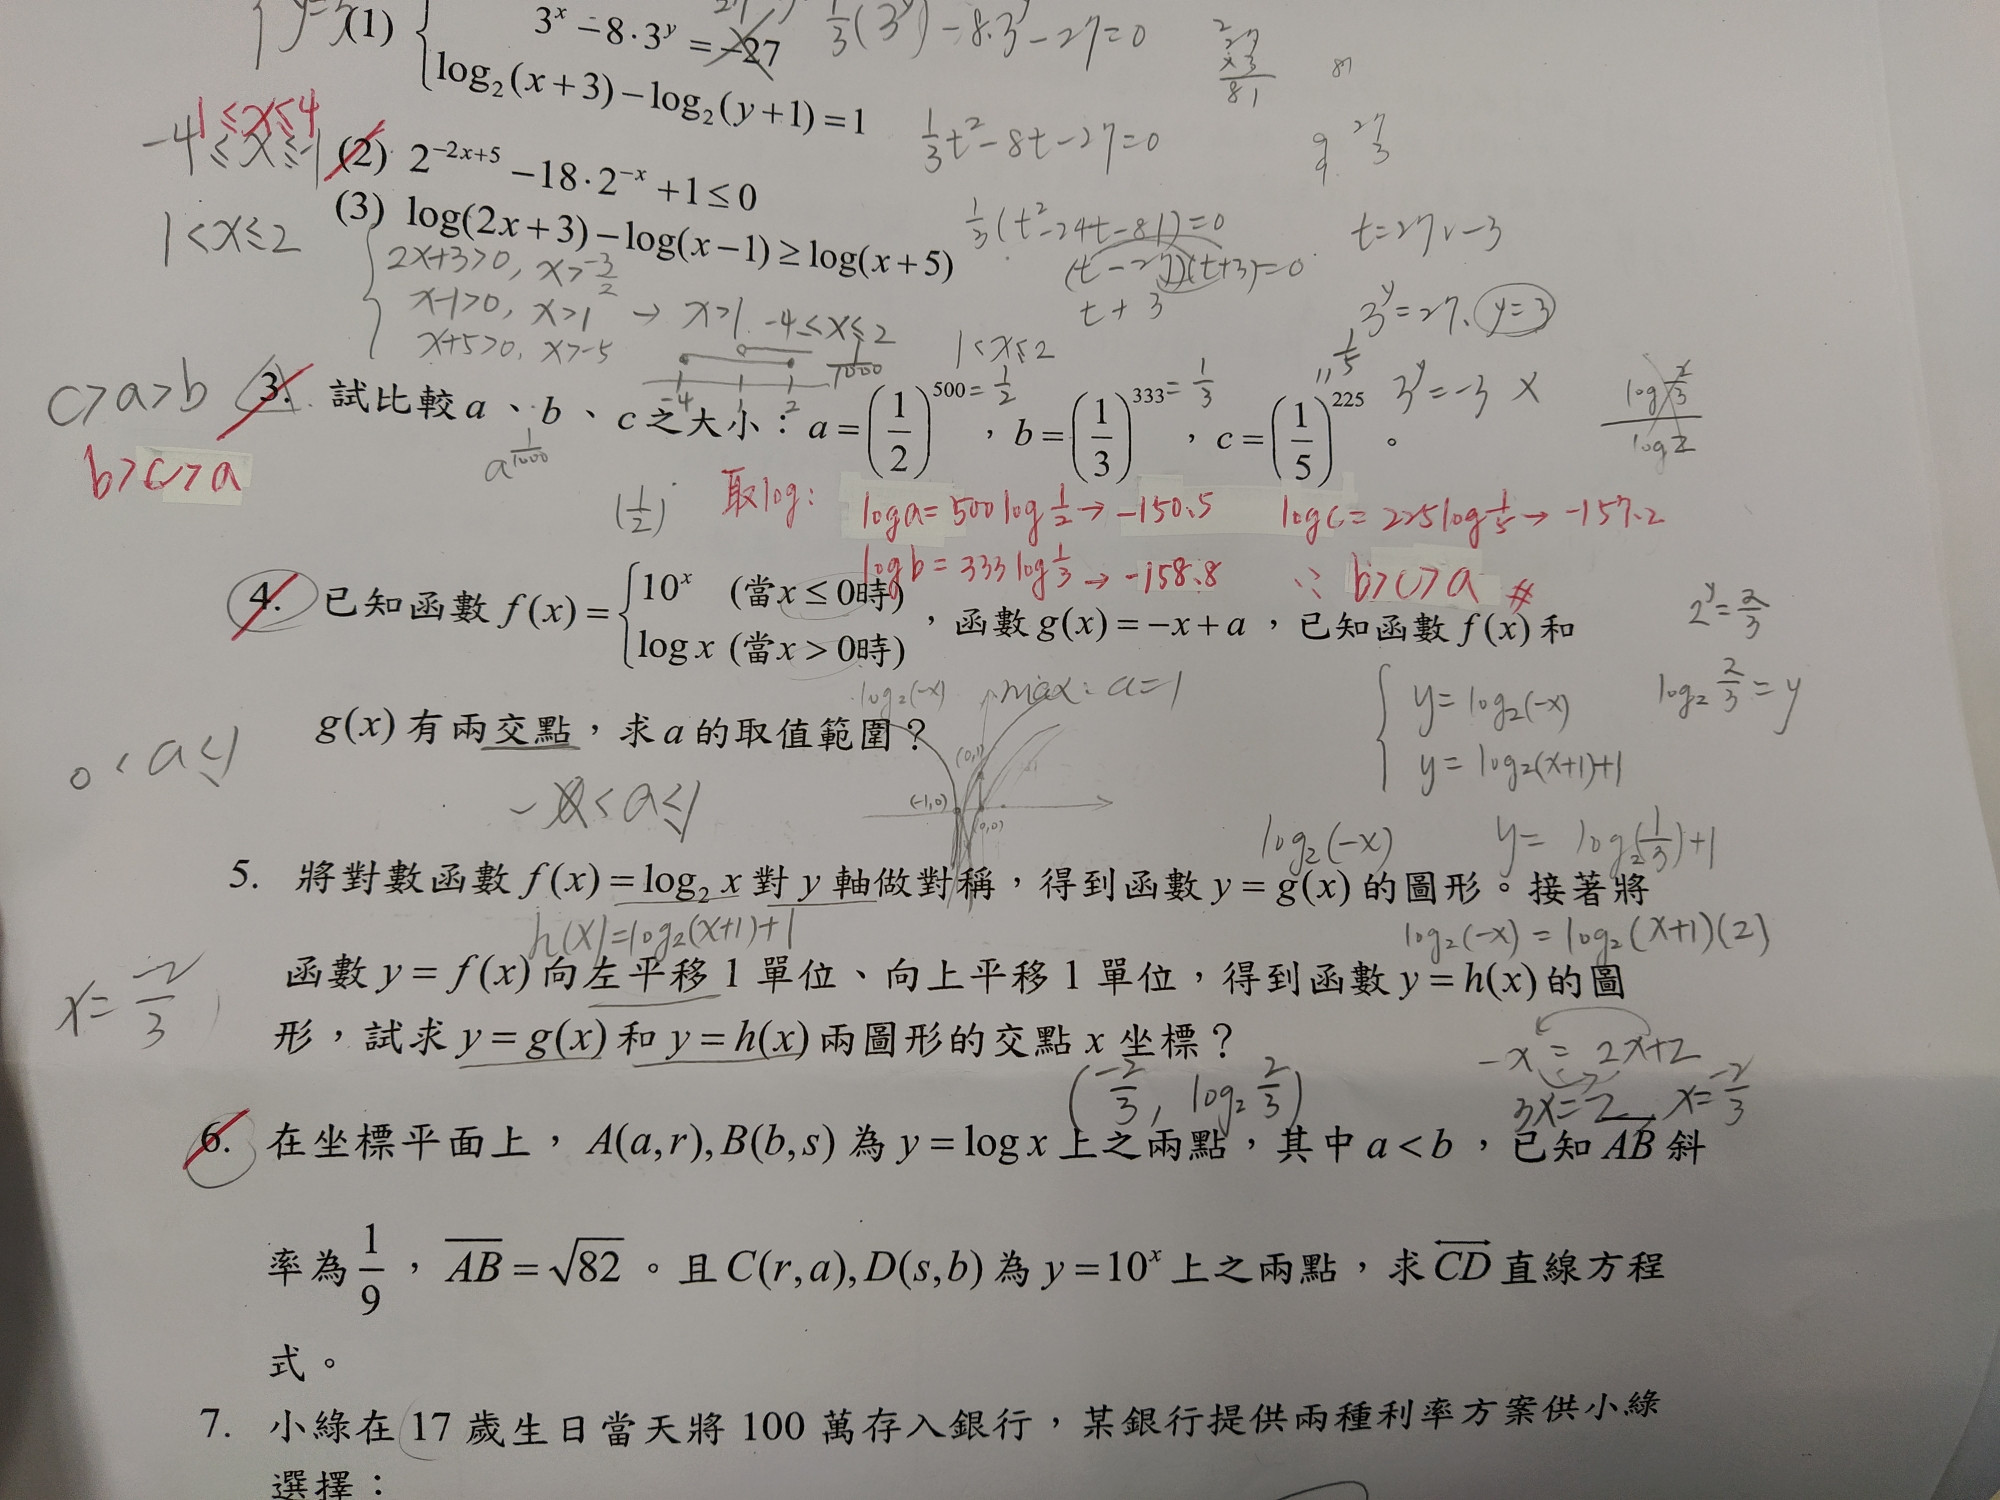 (1) 3^x − 8·3^y = −27
1/3(3^y) − 8·3^y − 27 = 0
log₂(x+3) − log₂(y+1) = 1
27
×3
81
1/3t² − 8t − 27 = 0
1≤x≤4
−4≤x≤−1
(2) 2^(−2x+5) − 18·2^(−x) + 1 ≤ 0
1/3(t² − 24t − 81) = 0
t = 27 v −3
1<x≤2
(3) log(2x+3) − log(x−1) ≥ log(x+5)
(t−27)(t+3) = 0
t + 3
2x+3>0, x>−3/2
x−1>0, x>1 → x>1 −4≤x≤2
x+5>0, x>−5
1<x≤2
3^y = 27, y=3
3^y = −3 X
−4 1 2
c>a>b
3. 試比較a、b、c之大小：a=(1/2)^500 = 1/2，b=(1/3)^333 = 1/3，c=(1/5)^225。
1/5
1/1000
a^(1/1000)
log 2/3
log 2
b>c>a
(1/2)
取log: log a = 500 log 1/2 → −150.5 log c = 225 log 1/5 → −157.2
log b = 333 log 1/3 → −158.8 ∴ b>c>a #
4. 已知函數 f(x) = { 10^x (當x ≤ 0時)
log x (當x > 0時)
，函數 g(x) = −x + a，已知函數 f(x) 和
2^y = 2/3
log₂ 2/3 = y
log₂(−x) max: a=1
y = log₂(−x)
y = log₂(x+1)+1
g(x) 有兩交點，求a的取值範圍？
0<a≤1
(0,1)
(−1,0)
(0,0)
<a≤1
log₂(−x) y = log₂(1/3)+1
5. 將對數函數 f(x) = log₂ x 對 y 軸做對稱，得到函數 y = g(x) 的圖形。接著將
h(x)=log₂(x+1)+1
log₂(−x) = log₂(x+1)(2)
函數 y = f(x) 向左平移 1 單位、向上平移 1 單位，得到函數 y = h(x) 的圖
x = −2/3
形，試求 y = g(x) 和 y = h(x) 兩圖形的交點 x 坐標？
−x = 2x+2
(−2/3, log₂ 2/3)
3x = −2 x = −2/3
6. 在坐標平面上，A(a,r),B(b,s) 為 y = log x 上之兩點，其中 a < b，已知 AB 斜
率為 1/9，AB = √82。且 C(r,a),D(s,b) 為 y = 10^x 上之兩點，求 CD 直線方程
式。
7. 小綠在 17 歲生日當天將 100 萬存入銀行，某銀行提供兩種利率方案供小綠
選擇：